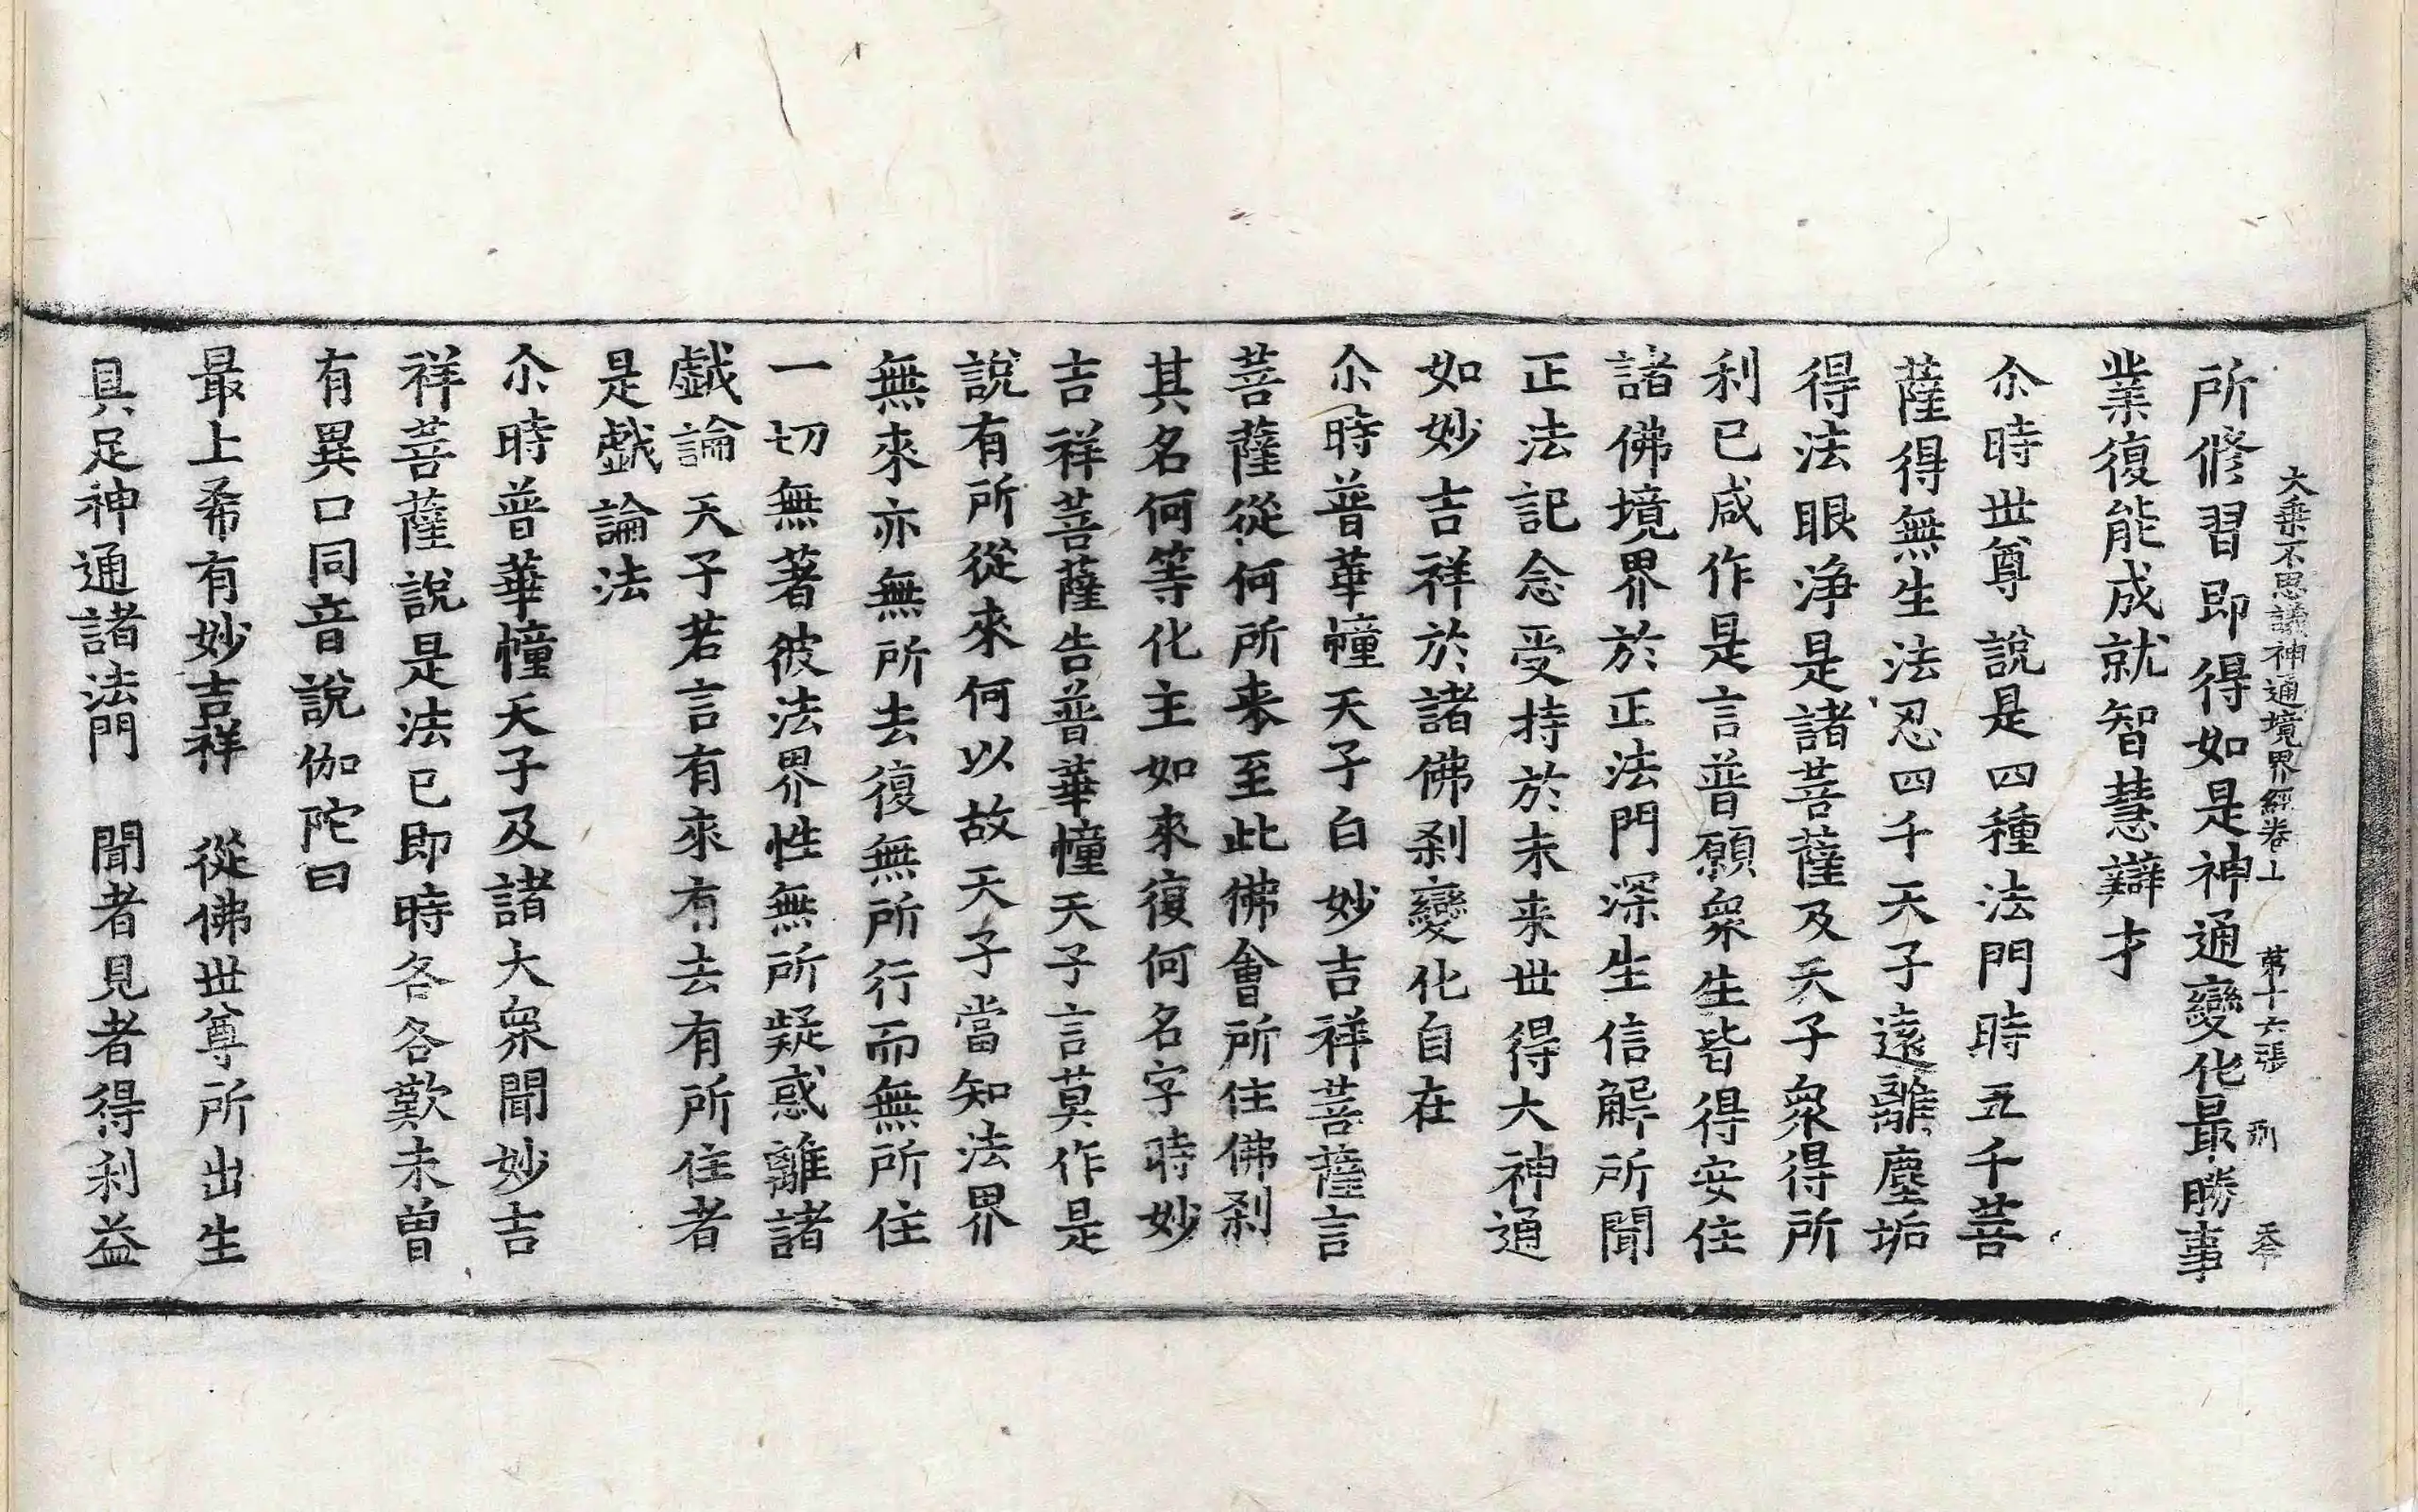 大乘不思議神通境界經卷上 第十六張 刑 天令
所修習即得如是神通變化最勝事
業復能成就智慧辯才
尒時世尊說是四種法門時五千菩
薩得無生法忍四千天子遠離塵垢
得法眼淨是諸菩薩及天子衆得所
利已咸作是言普願衆生皆得安住
諸佛境界於正法門深生信解所聞
正法記念受持於未来世得大神通
如妙吉祥於諸佛刹變化自在
尒時普華幢天子白妙吉祥菩薩言
菩薩從何所来至此佛會所住佛刹
其名何等化主如來復何名字時妙
吉祥菩薩告普華幢天子言莫作是
說有所從來何以故天子當知法界
無來亦無所去復無所行而無所住
一切無著彼法界性無所疑惑離諸
戱論天子若言有來有去有所住者
是戱論法
尒時普華幢天子及諸大衆聞妙吉
祥菩薩說是法已即時各各歎未曽
有異口同音說伽陀曰
最上希有妙吉祥　從佛世尊所出生
具足神通諸法門　聞者見者得利益